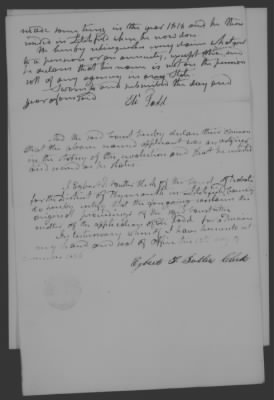 made some time in the year 1818 and he then
resided in Litchfield where he now does
He hereby relinquishes every claim whatever
to a pension or an annuity, except this, and
he declares that his name is not on the pension
roll of any agency in any State.
Sworn to and subscribed the day and
year aforesaid
Eli Todd
And the said Court hereby declare their opinion
that the above named applicant was
in the of the revolution and that he resided
and served as he states
I Egbert Clerk of the Court of Probate
for the district of Plymouth in Litchfield County
do hereby certify that the foregoing contains the
original proceedings of the said Court in the
matter of the application of Eli Todd for a Pension
In testimony whereof I have hereunto set
my hand and seal of Office this day of
Egbert Clerk